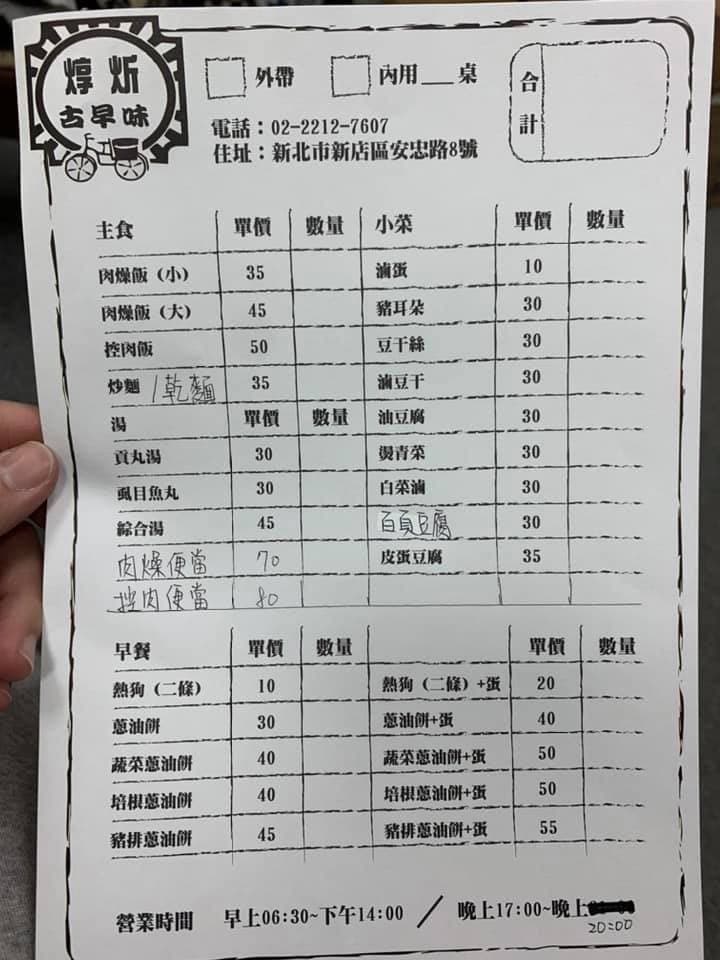 焞炘
古早味
外帶 內用___桌
合計
電話：02-2212-7607
住址：新北市新店區安忠路8號
主食 單價 數量 小菜 單價 數量
肉燥飯（小） 35 滷蛋 10
肉燥飯（大） 45 豬耳朵 30
控肉飯 50 豆干絲 30
炒麵/乾麵 35 滷豆干 30
湯 單價 數量 油豆腐 30
貢丸湯 30 燙青菜 30
虱目魚丸 30 白菜滷 30
綜合湯 45 百頁豆腐 30
肉燥便當 70 皮蛋豆腐 35
控肉便當 80
早餐 單價 數量 單價 數量
熱狗（二條） 10 熱狗（二條）+蛋 20
蔥油餅 30 蔥油餅+蛋 40
蔬菜蔥油餅 40 蔬菜蔥油餅+蛋 50
培根蔥油餅 40 培根蔥油餅+蛋 50
豬排蔥油餅 45 豬排蔥油餅+蛋 55
營業時間 早上06:30~下午14:00 / 晚上17:00~晚上
20:00